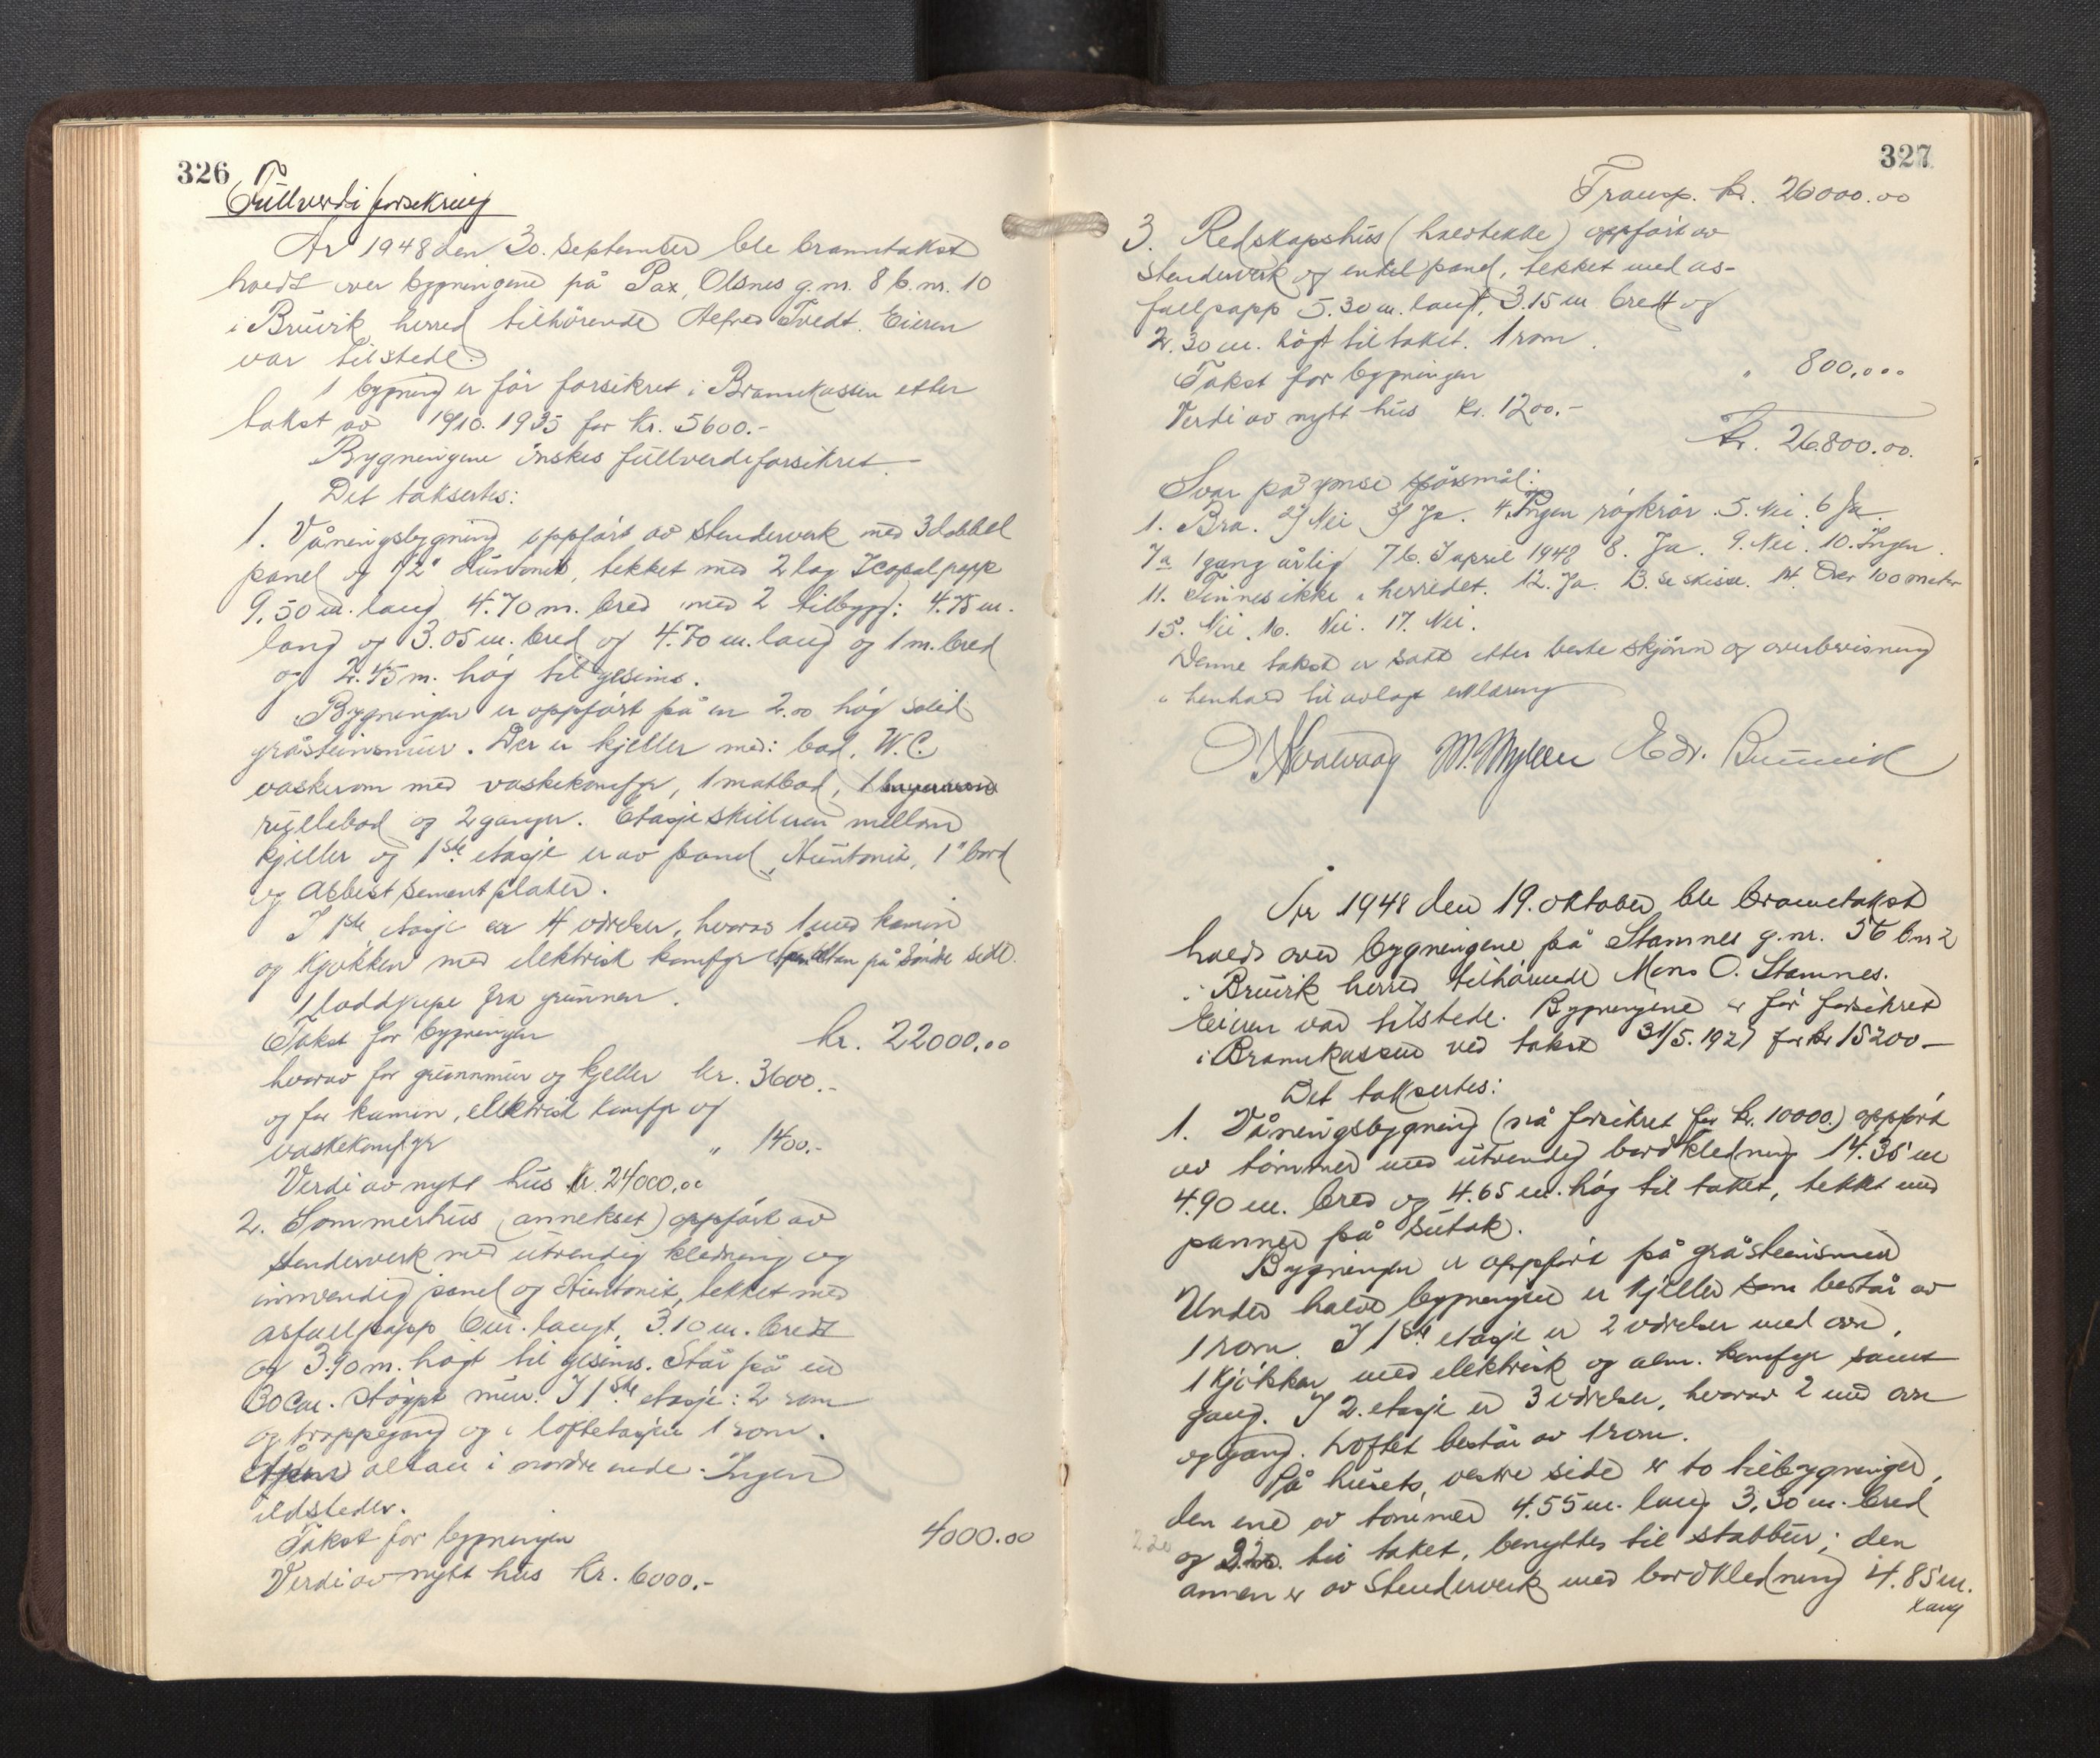 326
Fullverdi forsekring
År 1948 den 30. september ble branntakst
holdt over bygningene på Pax, Olsnes g.nr. 8 b.nr. 10
i Bruvik herred tilhörende Alfred Tvedt. Eieren
var tilstede.
1 bygning er før forsikret i Brannkassen etter
takst av 19/10. 1935 for kr. 5600.-
Bygningene önskes fullverdiforsikret.
Det taksertes:
1. Våningsbygning oppfört av stenderverk med 3 dobbel
panel og 1/2" Huntonit, tekket med 2 lag Icopal papp
9,50 m. lang 4.70 m. bred med 2 tilbygg: 4.75 m.
lang og 3.05 m. bred og 4.70 m. lang og 1 m. bred
og 2.45 m. høg til gesims.
Bygningen er oppfört på en 2.00 høg solid
gråsteinsmur. Der er kjeller med: bad, W.C.
vaskerom med vaskekomfyr, 1 matbod, 1
rullebod og 2 ganger. Etasjeskillnad mellom
kjeller og 1ste etasje er av panel, Huntonit, 1" bord
og asbest sement plater.
I 1ste etasje er 4 værelser, hvorav 1 med kamin
og kjøkken med elektrisk komfyr Åpen altan på söndre side.
1 loddpipe fra grunnen.
Takst for bygningen kr. 22000.00
hvorav for grunnmur og kjeller kr. 3600.-
og for kamin, elektrisk komfyr og
vaskekomfyr " 1400.-
Verdi av nytt hus kr. 24000.00
2. Sommerhus (annekset) oppfört av
stenderverk med utvendig kledning og
innvendig panel og Huntonit, tekket med
asfallpapp 6 m. langt, 3.10 m. bredt
og 3.90 m. høgt til gesims. Står på en
30 cm. støypt mur. I 1ste etasje: 2 rom
og trappegang og i loftetasjen 1 rom.
Åpen altan i nordre ende. Ingen
ildsteder.
Takst for bygningen 4000.00
Verdi av nytt hus kr. 6000.-
327
Transp. kr. 26000.00
3. Redskapshus (halvtekke) oppfört av
stenderverk og enkel panel, tekket med as-
fallpapp 5.30 m. langt, 3.15 m. bredt og
2.30 m. høgt til taket. 1 rom.
Takst for bygningen " 800.00
Verdi av nytt hus kr. 1200.-
kr. 26.800.00.
Svar på ymse spörsmål:
1. Bra. 2) Nei 3) Ja. 4. Ingen røykrør. 5. Nei. 6 Ja.
7a 1 gang årlig 7b. I april 1948 8. Ja. 9. Nei. 10. Ingen.
11. Finnes ikke i herredet. 12. Ja. 13. Se skisse. 14. Over 100 meter
15. Nei. 16. Nei. 17. Nei.
Denne takst er satt etter beste skjönn og overbevisning
i henhold til avlagt erklæring
M. Myklen Edv. Bruvik
År 1948 den 19. oktober ble branntakst
holdt over bygningene på Stamnes g.nr. 56 b.nr 2
i Bruvik herred tilhørende Mons O. Stamnes.
Eieren var tilstede. Bygningene er før forsikret
i Brannkassen ved takst 31/5. 1927 for kr 15200-
Det taksertes:
1. Våningsbygning (nå forsikret for kr. 10000.) oppfört
av tömmer med utvendig bordkledning 14.35 m
4.90 m. bred og 4.65 m. høg til taket, tekket med
panner på sutak.
Bygningen er oppfört på gråsteinsmur
Under halve bygningen er kjeller som består av
1 rom. I 1ste etasje er 2 værelser med ovn,
1 kjökken med elektrisk og alm. komfyr samt
gang. I 2. etasje er 3 værelser, hvorav 2 med ovn
og gang. Loftet består av 1 rom.
På husets vestre side er to tilbygninger,
den ene av tömmer 4.55 m. lang 3,30 m. bred
og 2.20. til taket, benyttes til stabbur; den
annen er av stenderverk med bordkledning 4.85 m.
lang